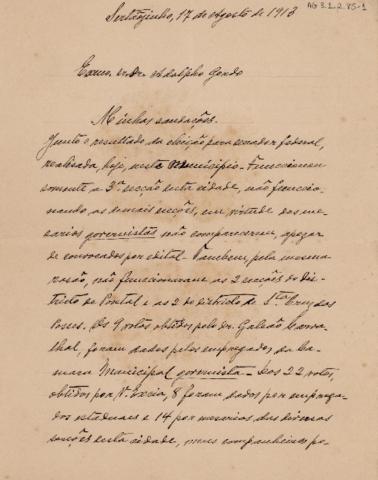 AG 3.1.2.85-1
Sertãosinho, 17 de Agosto de 1913
Exmo. Snr. Dr. Adolpho Gordo
Minhas saudações.
Junto o resultado da eleição para senador federal,
realisada, hoje, neste Municipio. Funccionou
somente a 3ª secção desta cidade, não funccio-
nando, as demais secções, em virtude dos me-
sarios governistas não comparecerem, apezar
de convocados por edital. Tambem, pela mesma
rasão, não funccionaram as 2 secções do dis-
tricto de Pontal e as 2 do districto de Sta. Cruz das
Posses. Os 9 votos obtidos pelo dr. Galeão Carva-
lhal, foram dados pelos empregados da Ca-
mara Municipal governista. Dos 22 votos,
obtidos por V. Excia, 8 foram dados por emprega-
dos estaduaes e 14 por mesarios das diversas
secções desta cidade, meus companheiros po-